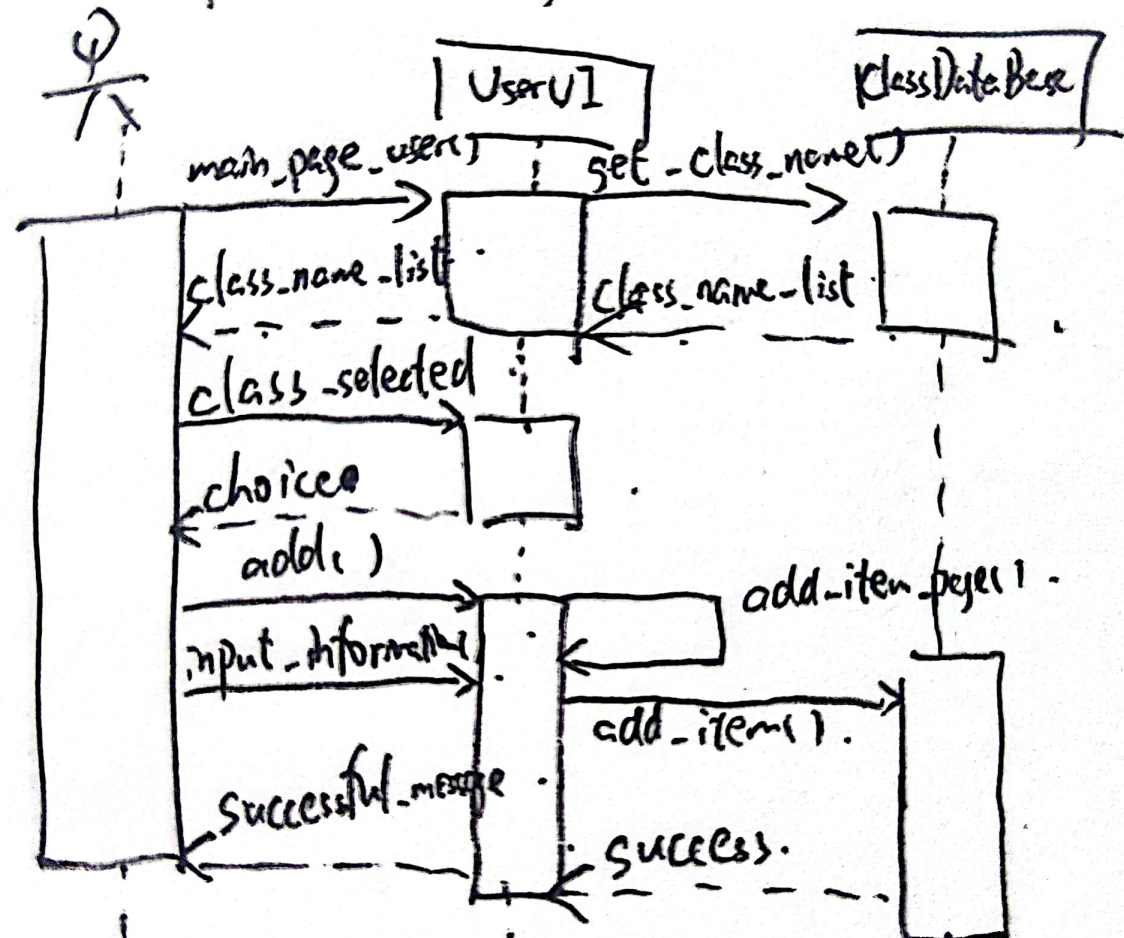 UserUI
ClassDataBase
main_page_user()
get_class_name()
class_name_list
class_name_list
class_selected
choice
add()
add_item_page()
input_information(
add_item()
successful_message
success.